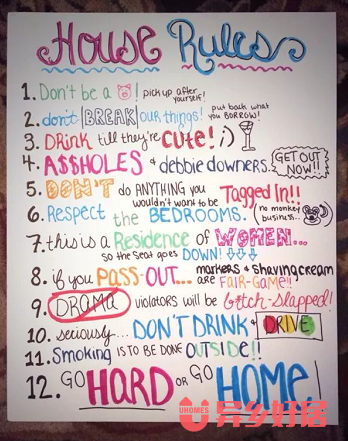 House Rules
1. Don't be a ! pick up after yourself!
2. don't BREAK our things! put back what you BORROW!
3. DRink till they're CUTE! ;)
4. A$$HOLES & debbie downers. GET OUT NOW!!
5. DON'T do ANYTHING you wouldn't want to be Tagged In!!
6. Respect the BEDROOMS. (no monkey business...)
7. this is a Residence of WOMEN...
so the seat goes DOWN!
8. if you PASS-OUT... markers & shaving cream are FAIR-GAME!!
9. DRAMA violators will be b*tch-slapped!
10. seriously... DON'T DRINK & DRIVE
11. Smoking IS TO BE DONE OUTSIDE!!
12. GO HARD OR GO HOME!
UHOMES 异乡好居